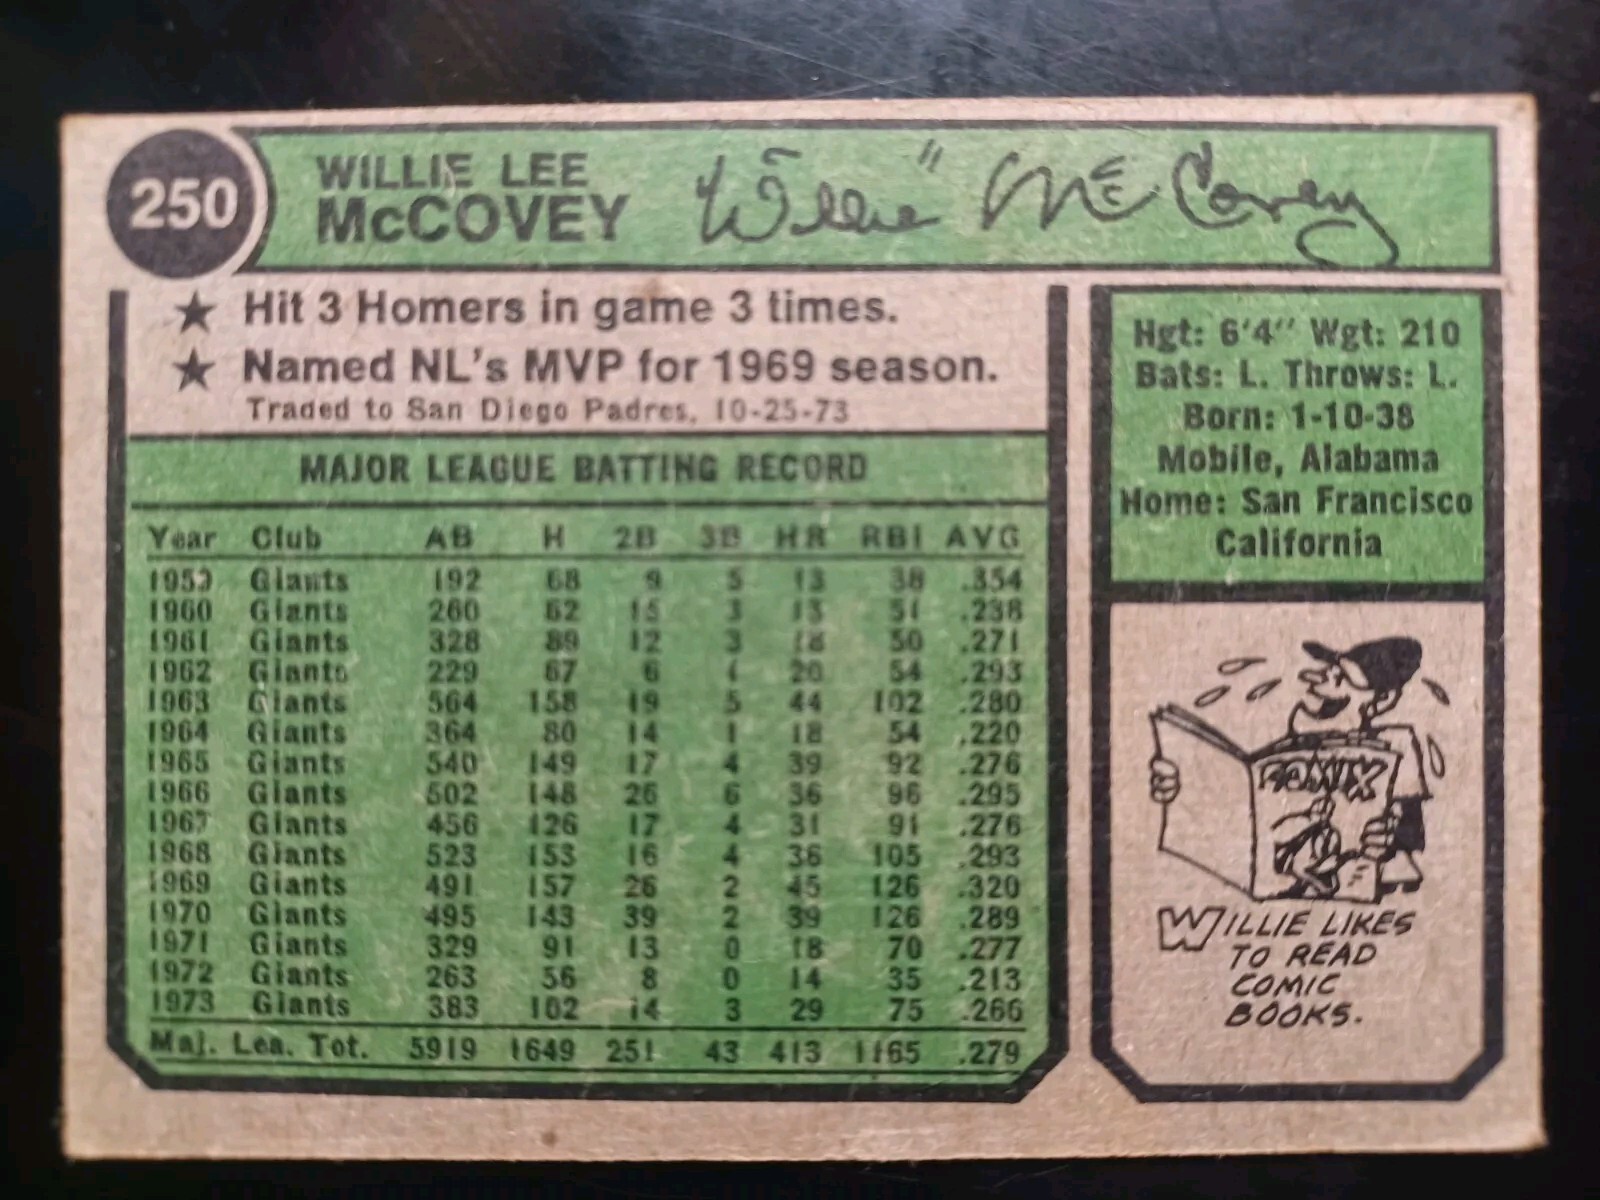 250
WILLIE LEE
McCOVEY
"Willie" McCovey
★ Hit 3 Homers in game 3 times.
★ Named NL's MVP for 1969 season.
Traded to San Diego Padres, 10-25-73
MAJOR LEAGUE BATTING RECORD
Year Club AB H 2B 3B HR RBI AVG
1959 Giants 192 68 9 5 13 38 .354
1960 Giants 260 62 15 3 13 51 .238
1961 Giants 328 89 12 3 18 50 .271
1962 Giants 229 67 6 1 20 54 .293
1963 Giants 564 158 19 5 44 102 .280
1964 Giants 364 80 14 1 18 54 .220
1965 Giants 540 149 17 4 39 92 .276
1966 Giants 502 148 26 6 36 96 .295
1967 Giants 456 126 17 4 31 91 .276
1968 Giants 523 153 16 4 36 105 .293
1969 Giants 491 157 26 2 45 126 .320
1970 Giants 495 143 39 2 39 126 .289
1971 Giants 329 91 13 0 18 70 .277
1972 Giants 263 56 8 0 14 35 .213
1973 Giants 383 102 14 3 29 75 .266
Maj. Lea. Tot. 5919 1649 251 43 413 1165 .279
Hgt: 6'4" Wgt: 210
Bats: L. Throws: L.
Born: 1-10-38
Mobile, Alabama
Home: San Francisco
California
KOMIX
WILLIE LIKES
TO READ
COMIC
BOOKS.